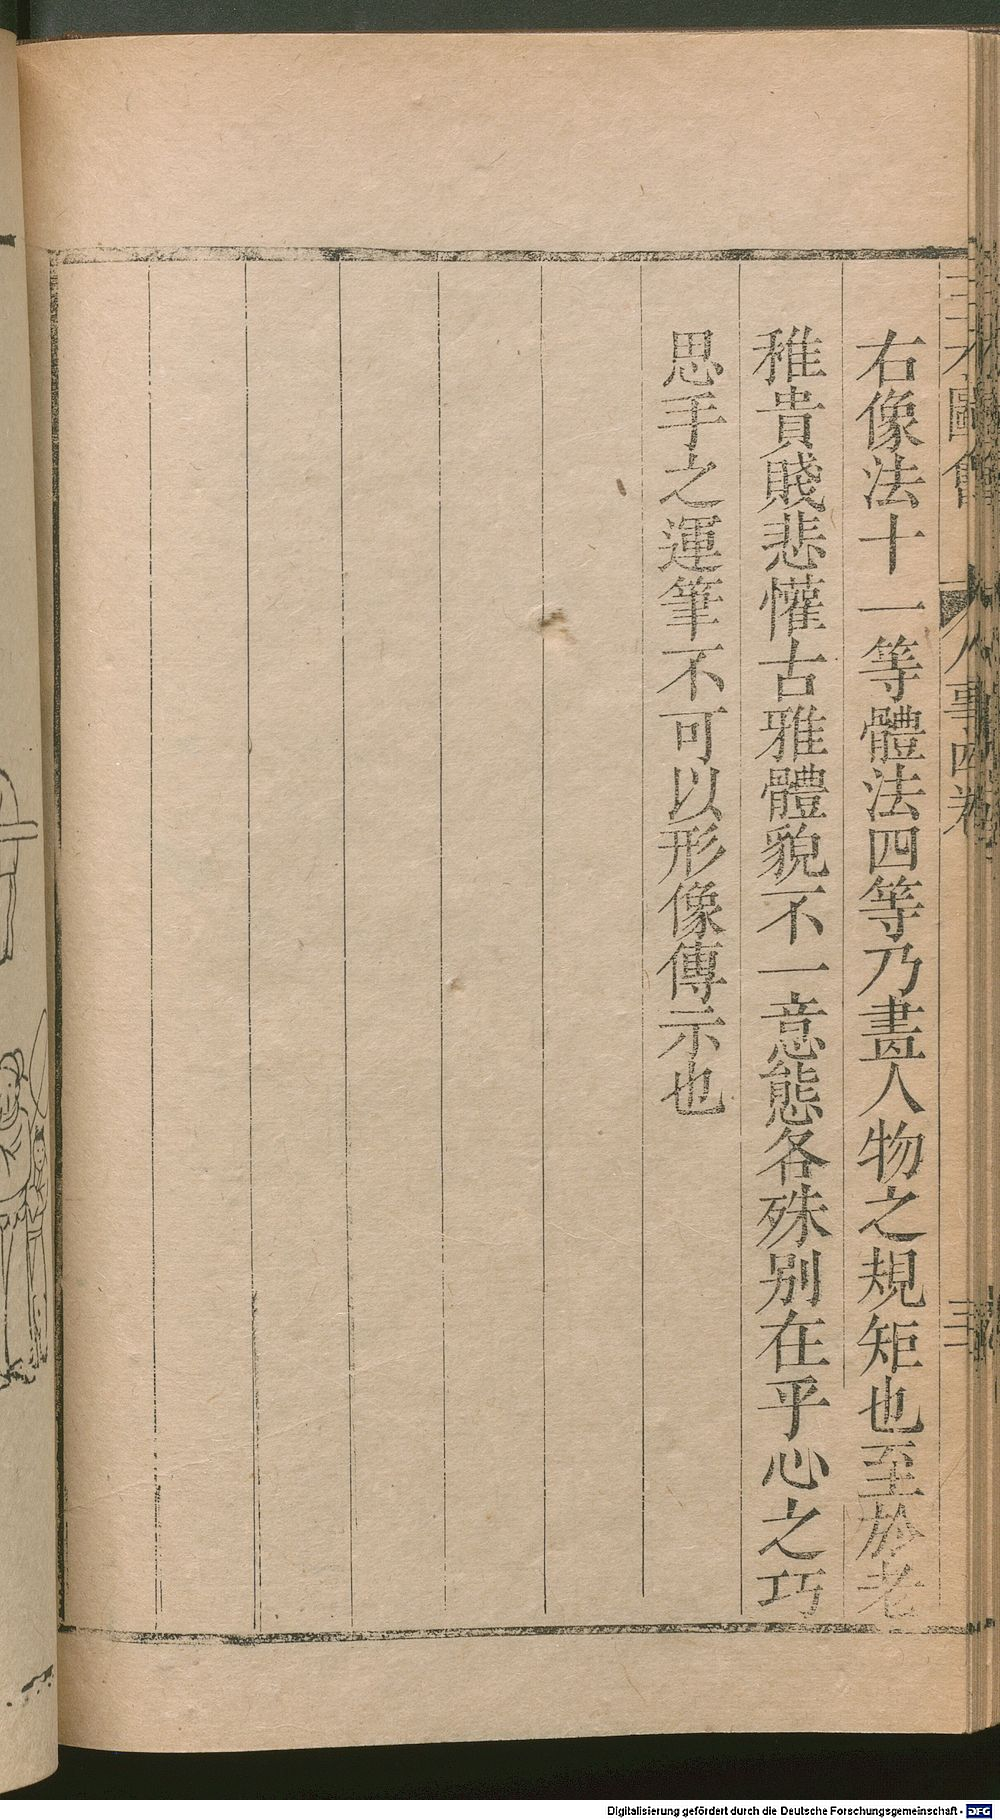 右像法十一等體法四等乃畫人物之規矩也至於老
稚貴賤悲懽古雅體貌不一意態各殊別在乎心之巧
思手之運筆不可以形像傳示也
三才圖會
人事四卷
Digitalisierung gefördert durch die Deutsche Forschungsgemeinschaft - DFG